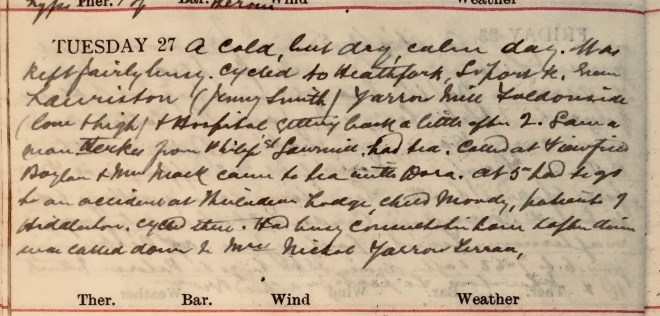 Pher. Bar. Wind Weather
TUESDAY 27 A cold, but dry, calm day. Was
kept fairly busy. Cycled to Heathpark,
Lauriston (Jenny Smith) Yarrow Mill Faldonside
(low & high) & Hospital getting back a little after 2. Saw a
man from Philip Sawmill. had tea. Called at Viewfield
& Mrs Mack came to tea with Dora. at 5 had to go
to an accident at Lodge, child Moody, patients of
cycled there. Had busy Consultation hour & after dinner
was called down to Mrs Nichol Yarrow Terrace,
Ther. Bar. Wind Weather